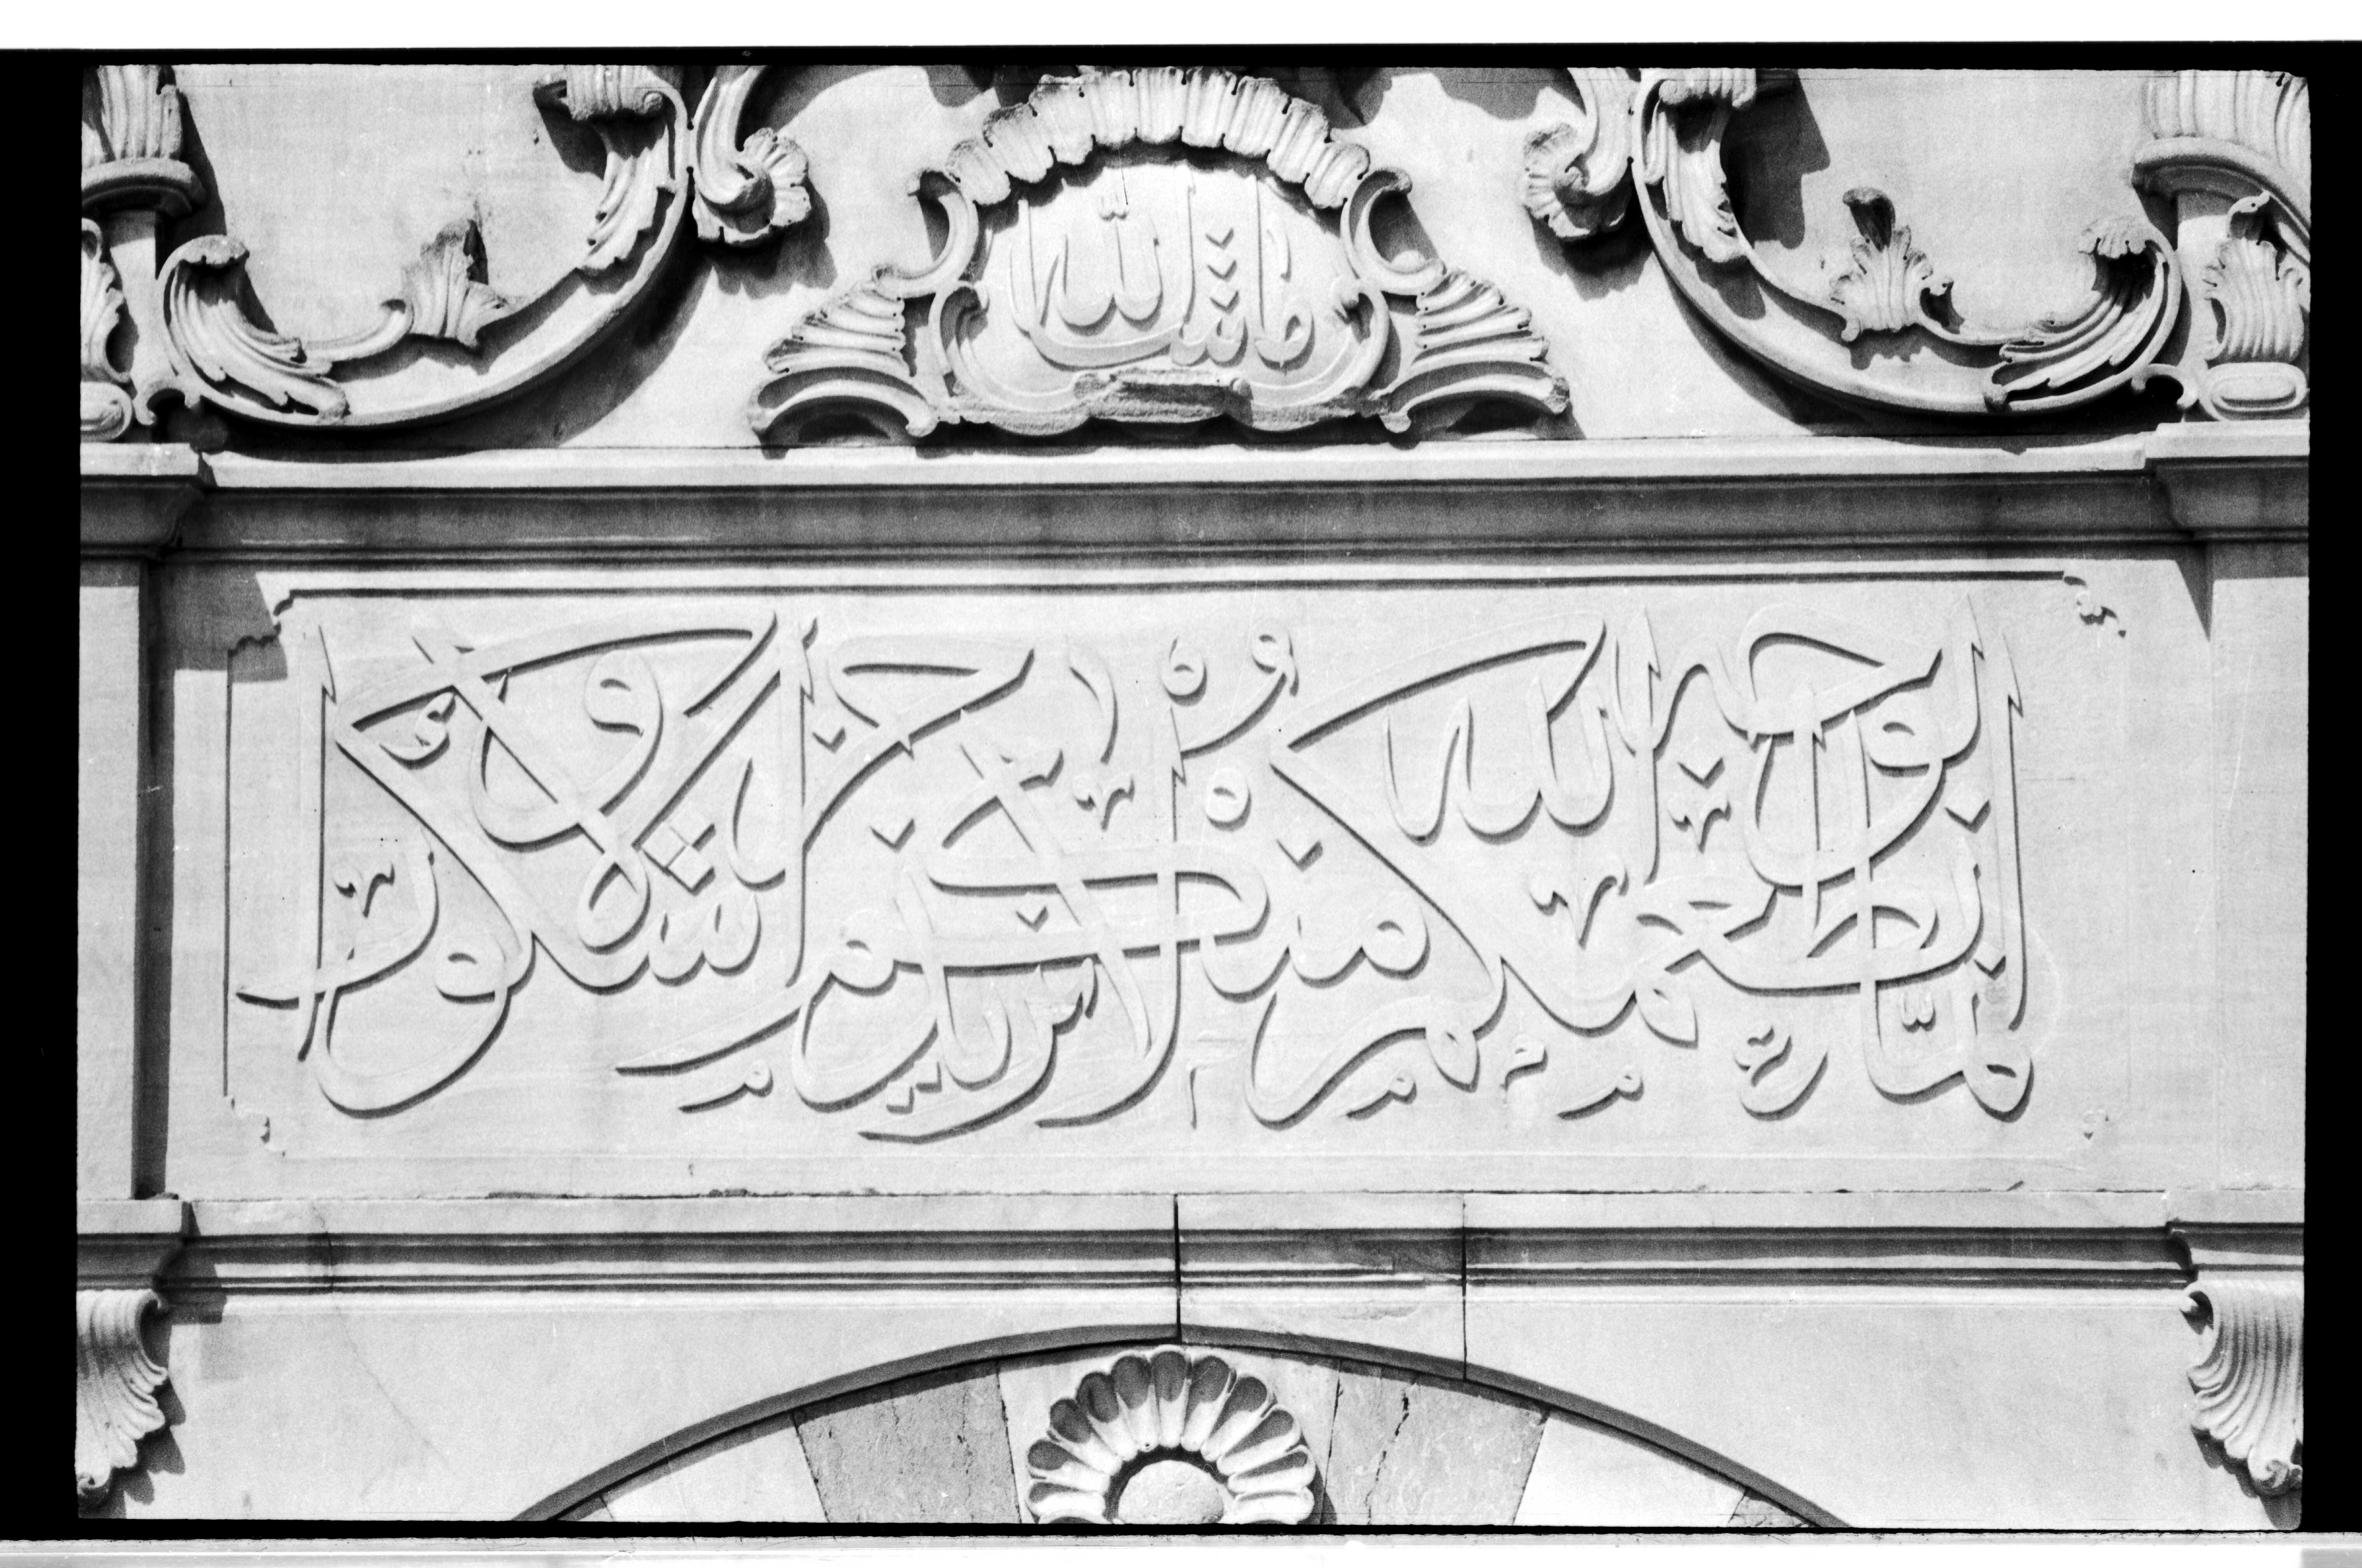 ما شاء الله
إنما نطعمكم لوجه الله لا نريد منكم جزاء ولا شكورا